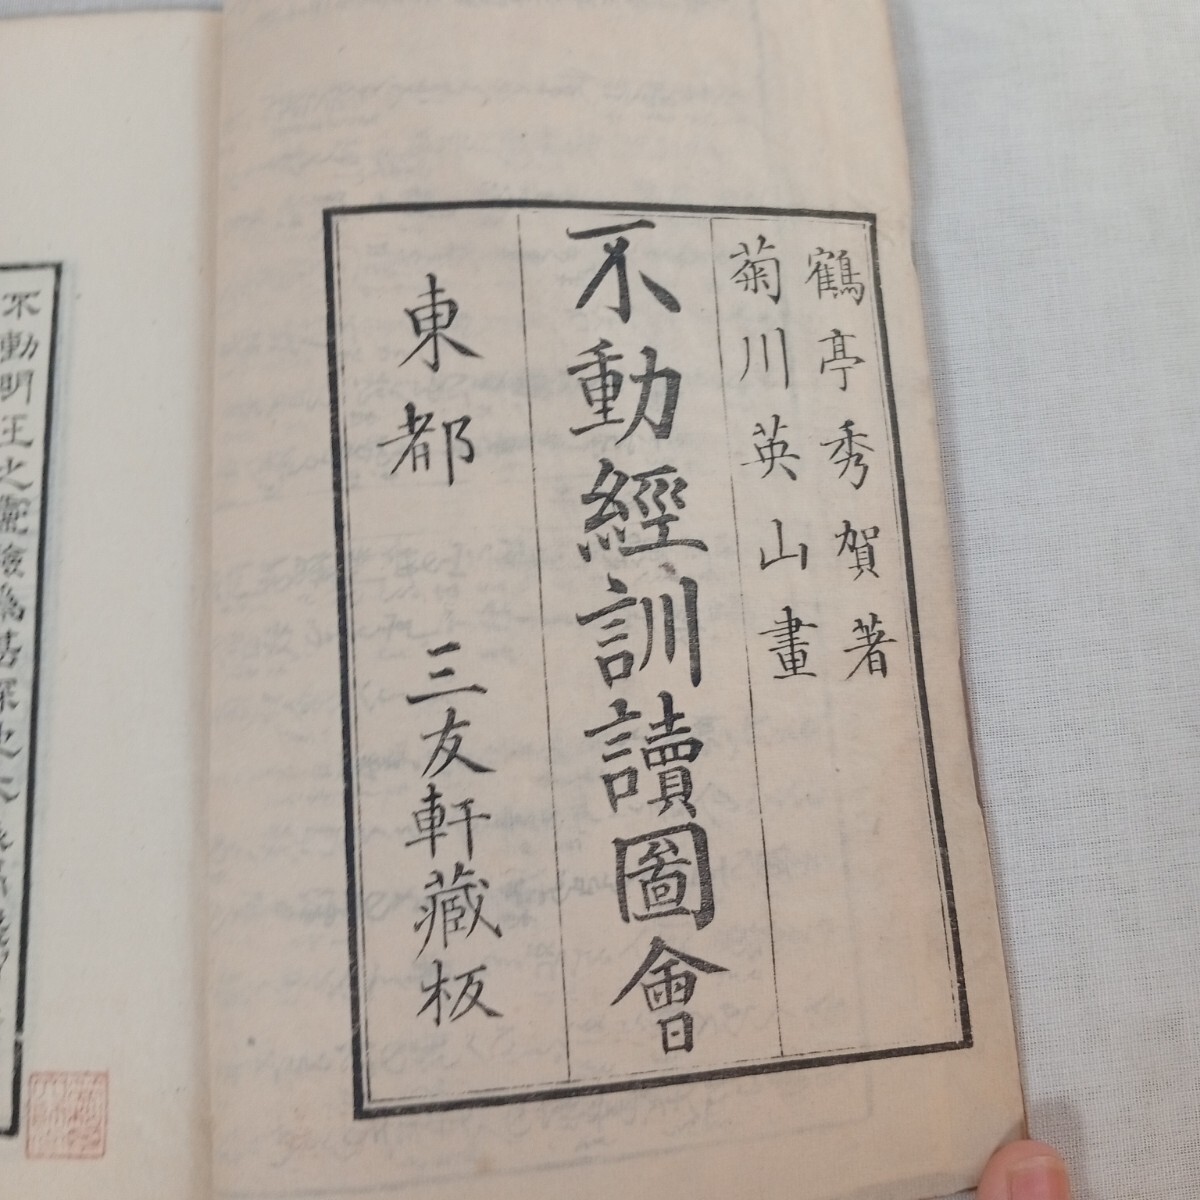 鶴亭秀賀著
菊川英山畫
不動經訓讀圖會
東都 三友軒藏板
不動明王之靈驗為甚深之大